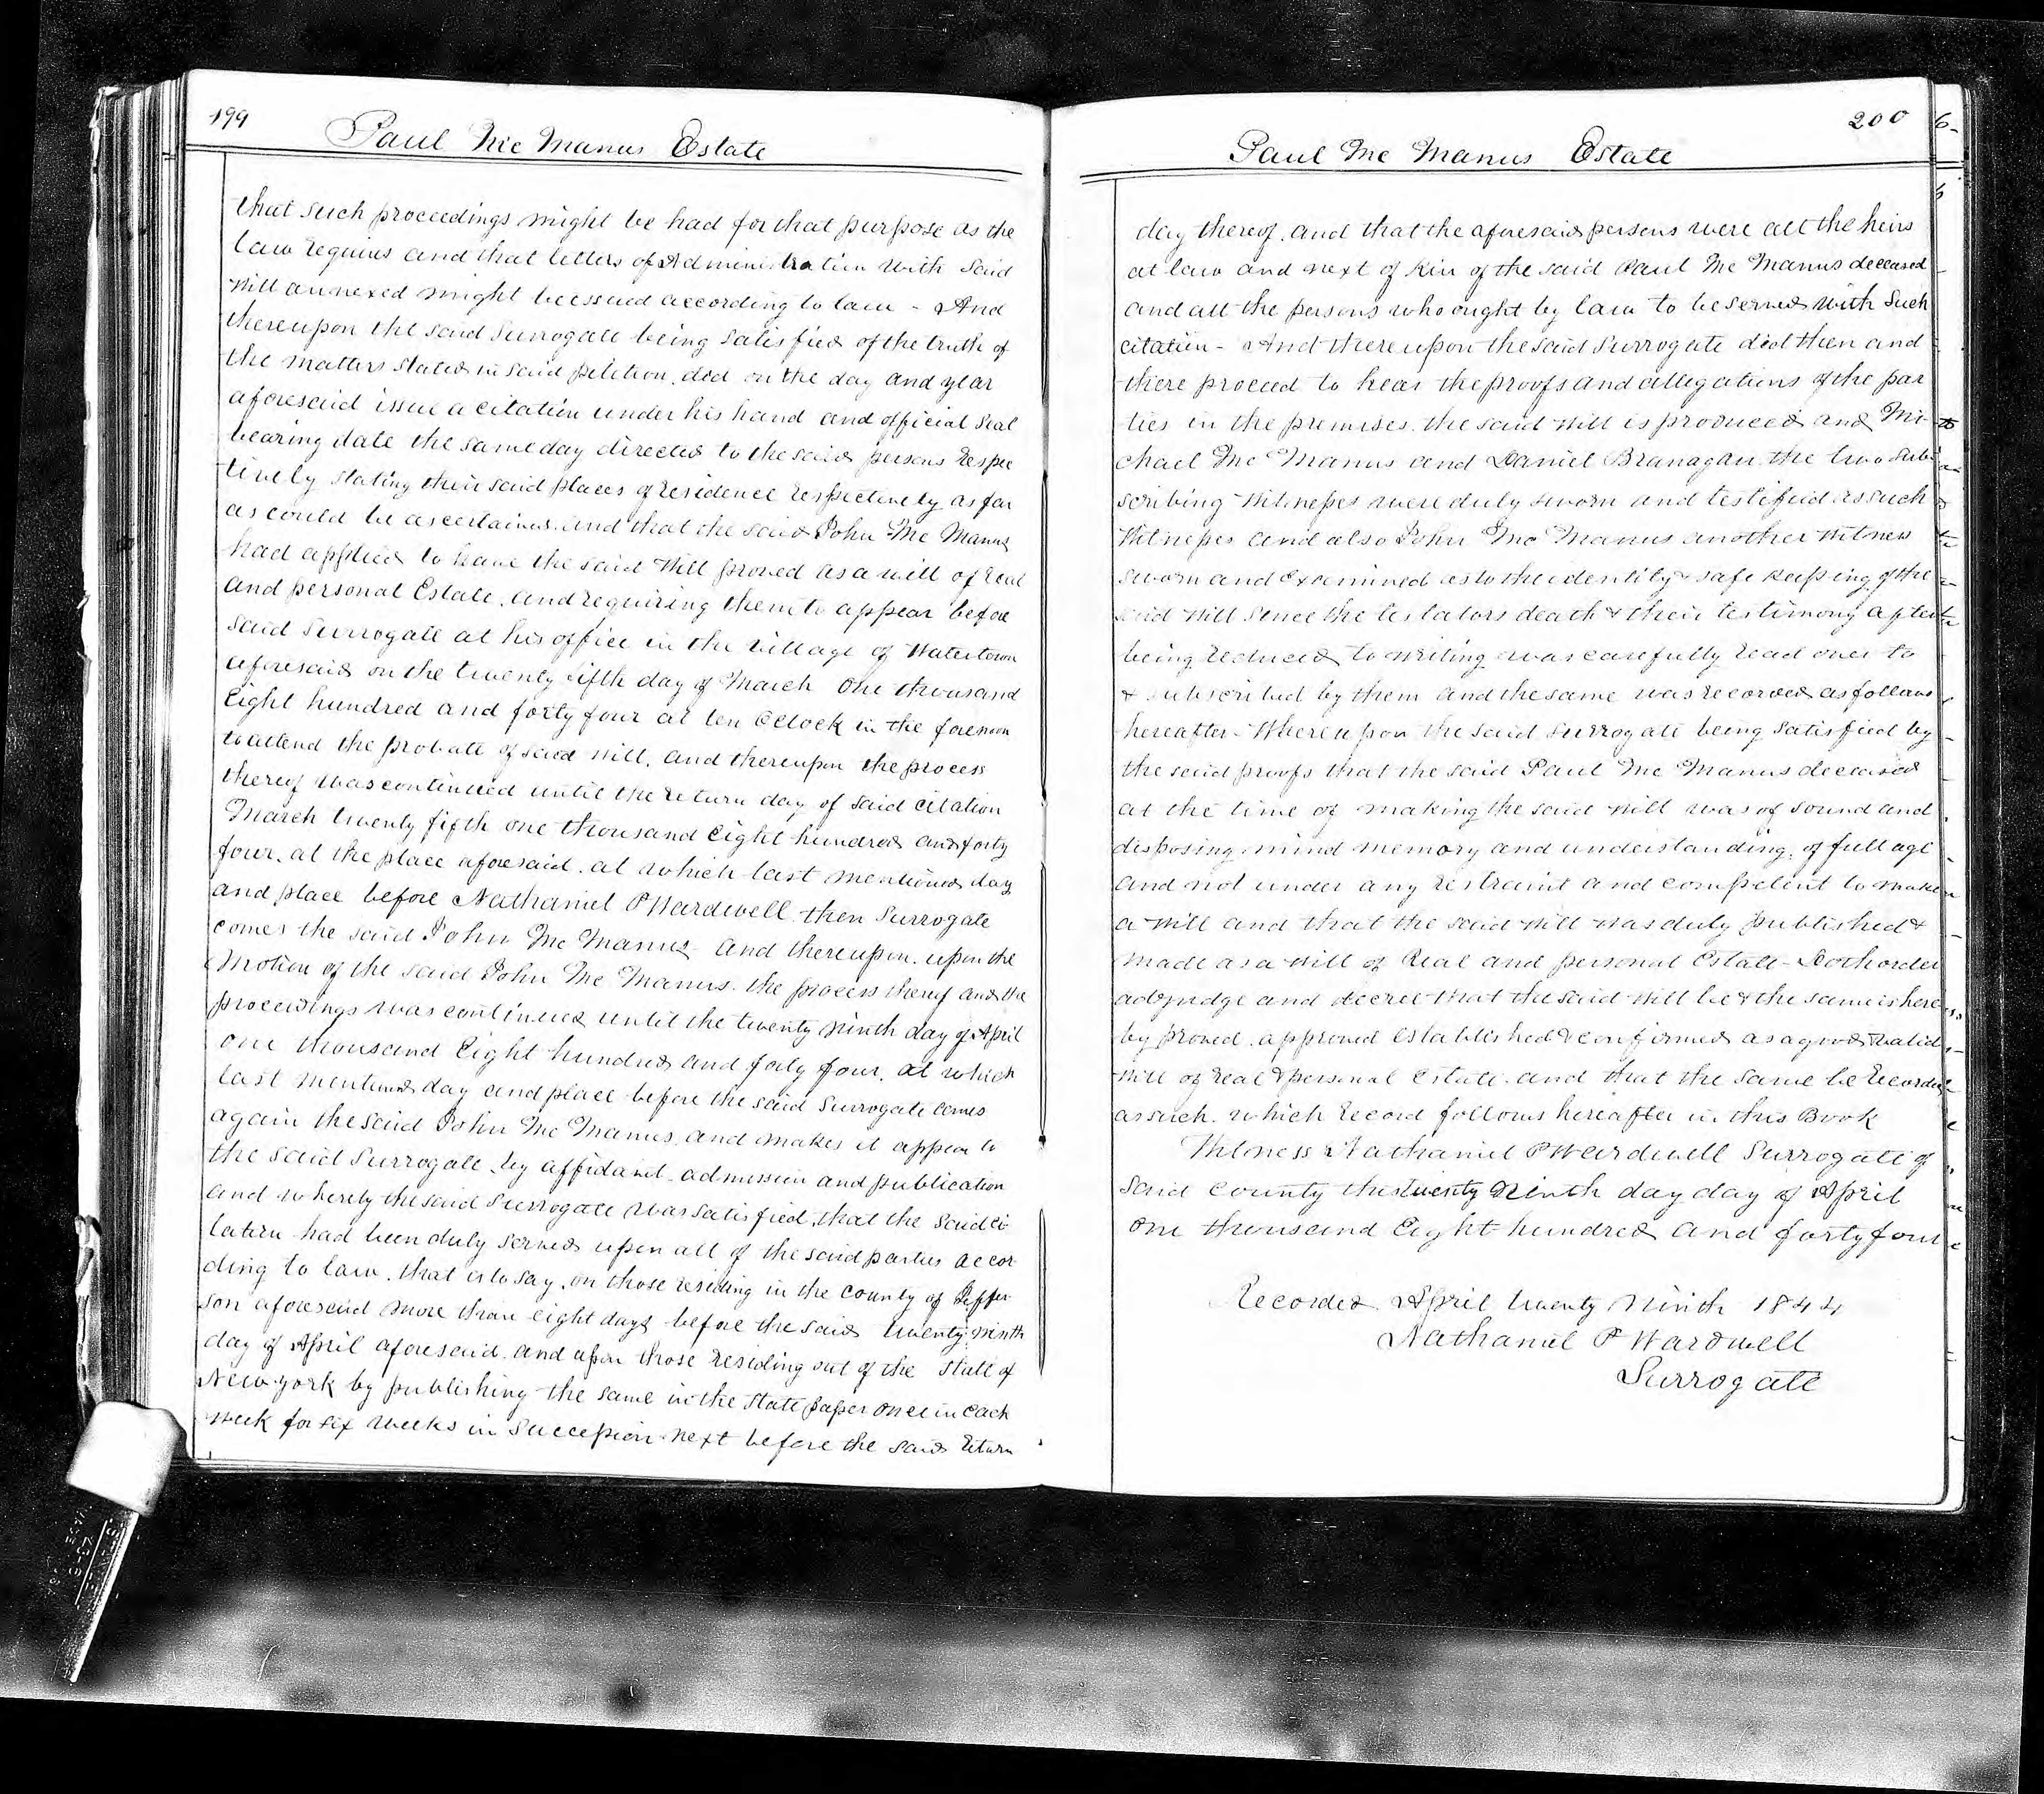 199
Paul Mc Manus Estate
that such proceedings might be had for that purpose as the
law requires and that letters of Administration with said
will annexed might be issued according to law - And
thereupon the said surrogate being satisfied of the truth of
the matters stated in said petition, did on the day and year
aforesaid issue a citation under his hand and official seal
bearing date the same day directed to the said persons respec
tively stating their said places of residence respectively as far
as could be ascertained. and that the said John Mc Manus
had applied to have the said Will proved as a will of real
and personal Estate, and requiring them to appear before
said Surrogate at his office in the village of Watertown
aforesaid on the twenty fifth day of March One thousand
Eight hundred and forty four at ten Oclock in the forenoon
to attend the probate of said will, and thereupon the process
thereof was continued until the return day of said citation
March twenty fifth one thousand Eight hundred and forty
four. at the place aforesaid. at which last mentioned day
and place before Nathaniel P Wardwell then Surrogate
comes the said John Mc Manus and thereupon. upon the
Motion of the said John Mc Manus. the process thereof and the
proceedings was continued until the twenty ninth day of April
one thousand Eight hundred and forty four. at which
last mentioned day and place before the said Surrogate comes
again the said John Mc Manus, and makes it appear to
the said Surrogate by affidavit admission and publication
and whereby the said surrogate was satisfied, that the said ci
tation had been duly served upon all of the said parties accor
ding to law. that is to say. on those residing in the county of Jeffer
son aforesaid more than eight days before the said twenty ninth
day of April aforesaid. and upon those residing out of the State of
New-york by publishing the same in the State paper once in each
week for six weeks in succession next before the said return
200
Paul Mc Manus Estate
day thereof. and that the aforesaid persons were all the heirs
at law and next of kin of the said Paul Mc Manus deceased
and all the persons who ought by law to be served with such
citation - And thereupon the said surrogate did then and
there proceed to hear the proofs and allegations of the par
ties in the premises. the said will is produced and Mi-
chael Mc Manus and Daniel Branagan the two sub
scribing Witnesses were duly sworn and testified as such
Witnesses and also John Mc Manus another witness
sworn and Examined as to the identity & safe keeping of the
said will since the testators death & their testimony after
being reduced to writing was carefully read over to
& subscribed by them and the same was recorded as follows
hereafter - Whereupon the said Surrogate being satisfied by
the said proofs that the said Paul Mc Manus deceased
at the time of making the said will was of sound and
disposing mind memory and understanding, of full age
and not under any restraint and competent to make
a will and that the said will was duly published &
made as a will of Real and personal Estate - Doth order
adjudge and decree that the said will be & the same is here
by proved. approved established & confirmed as a good & valid
will of real & personal estate. and that the same be recorded
as such. which record follows hereafter in this Book
Witness Nathaniel P Wardwell Surrogate of
said county this twenty Ninth day day of April
One thousand Eight hundred and forty four
Recorded April twenty Ninth 1844
Nathaniel P Wardwell
Surrogate